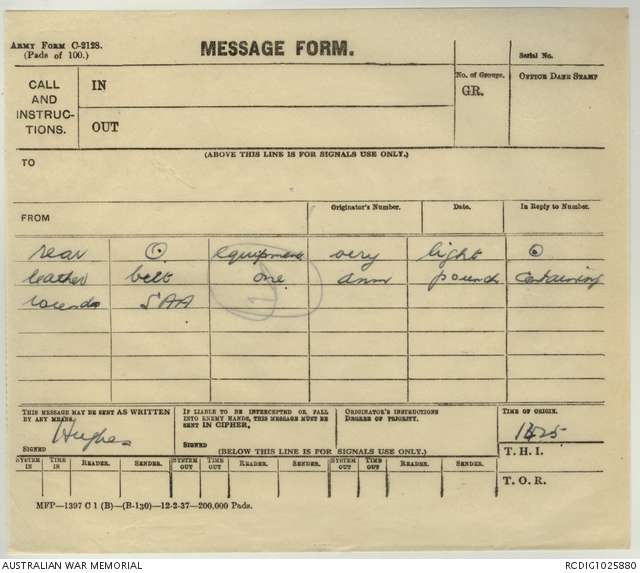 ARMY FORM C-2128.
(Pads of 100.)
MESSAGE FORM.
Serial No.
CALL
AND
INSTRUC-
TIONS.
IN
OUT
No. of Groups.
GR.
OFFICE DATE STAMP
(ABOVE THIS LINE IS FOR SIGNALS USE ONLY.)
TO
FROM
Originator's Number.
Date.
In Reply to Number.
rear ⊙ equipment very light ⊙
leather belt one amm pouch containing
rounds SAA
THIS MESSAGE MAY BE SENT AS WRITTEN
BY ANY MEANS.
Hughes
SIGNED
IF LIABLE TO BE INTERCEPTED OR FALL
INTO ENEMY HANDS, THIS MESSAGE MUST BE
SENT IN CIPHER.
SIGNED
ORIGINATOR'S INSTRUCTIONS
DEGREE OF PRIORITY.
TIME OF ORIGIN.
1425
(BELOW THIS LINE IS FOR SIGNALS USE ONLY.)
T. H. I.
SYSTEM IN TIME IN READER. SENDER. SYSTEM OUT TIME OUT READER. SENDER. SYSTEM OUT TIME OUT READER. SENDER.
T. O. R.
MFP—1397 C 1 (B)—(B-130)—12-2-37—200,000 Pads.
AUSTRALIAN WAR MEMORIAL
RCDIG1025880